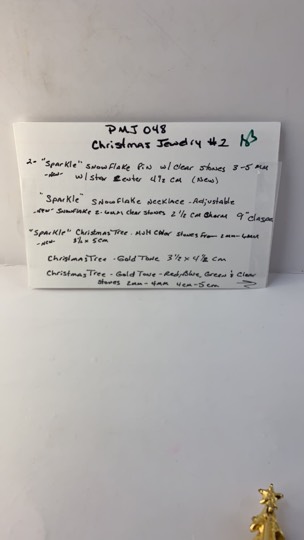 PMJ 048
Christmas Jewelry #2
2- "Sparkle" Snowflake Pin w/ Clear Stones 3-5 mm
-New- w/ Star Center 4 1/2 cm (New)
"Sparkle" Snowflake Necklace - Adjustable
-New- Snowflake Clear Stones 2 1/2 cm Charm 9" clasped
"Sparkle" Christmas Tree - Multi Color Stones From 2mm-6mm
-New- x 5cm
Christmas Tree - Gold Tone 3 1/2 x 4 1/2 cm
Christmas Tree - Gold Tone - Red, Blue, Green & Clear
Stones 2mm-4mm 4cm-5cm